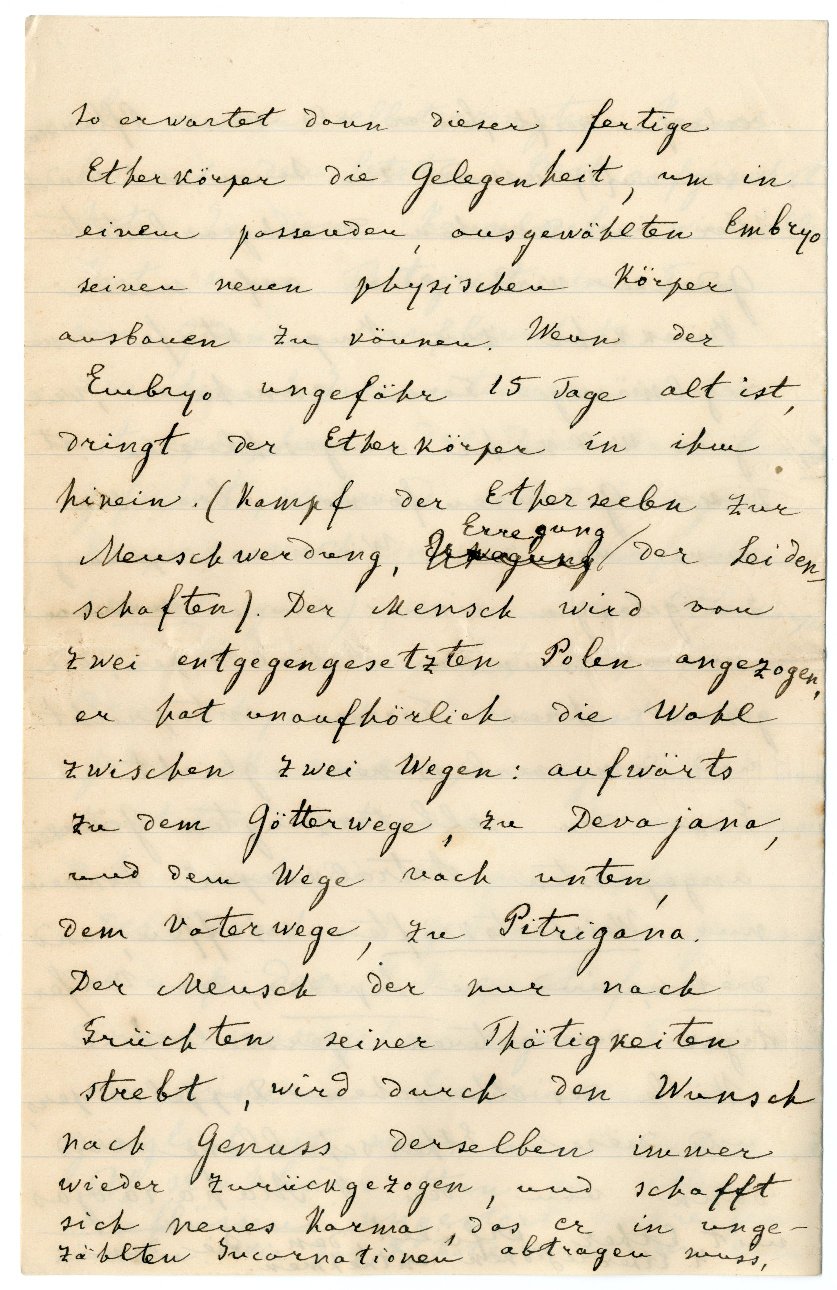 so erwartet dann dieser fertige
Etherkörper die Gelegenheit, um in
einem passenden, ausgewählten Embryo
seinen neuen physischen Körper
ausbauen zu können. Wenn der
Embryo ungefähr 15 Tage alt ist,
dringt der Etherkörper in ihm
hinein. (Kampf der Etherseelen zur
Erregung
Menschwerdung, der Leiden-
schaften). Der Mensch wird von
zwei entgegengesetzten Polen angezogen,
er hat unaufhörlich die Wahl
zwischen zwei Wegen: aufwärts
zu dem Götterwege, zu Devajana,
und dem Wege nach unten,
dem Vaterwege, zu Pitrigana.
Der Mensch der nur nach
Früchten seiner Thätigkeiten
strebt, wird durch den Wunsch
nach Genuss derselben immer
wieder zurückgezogen, und schafft
sich neues Karma, das er in unge-
zählten Incarnationen abtragen muss,